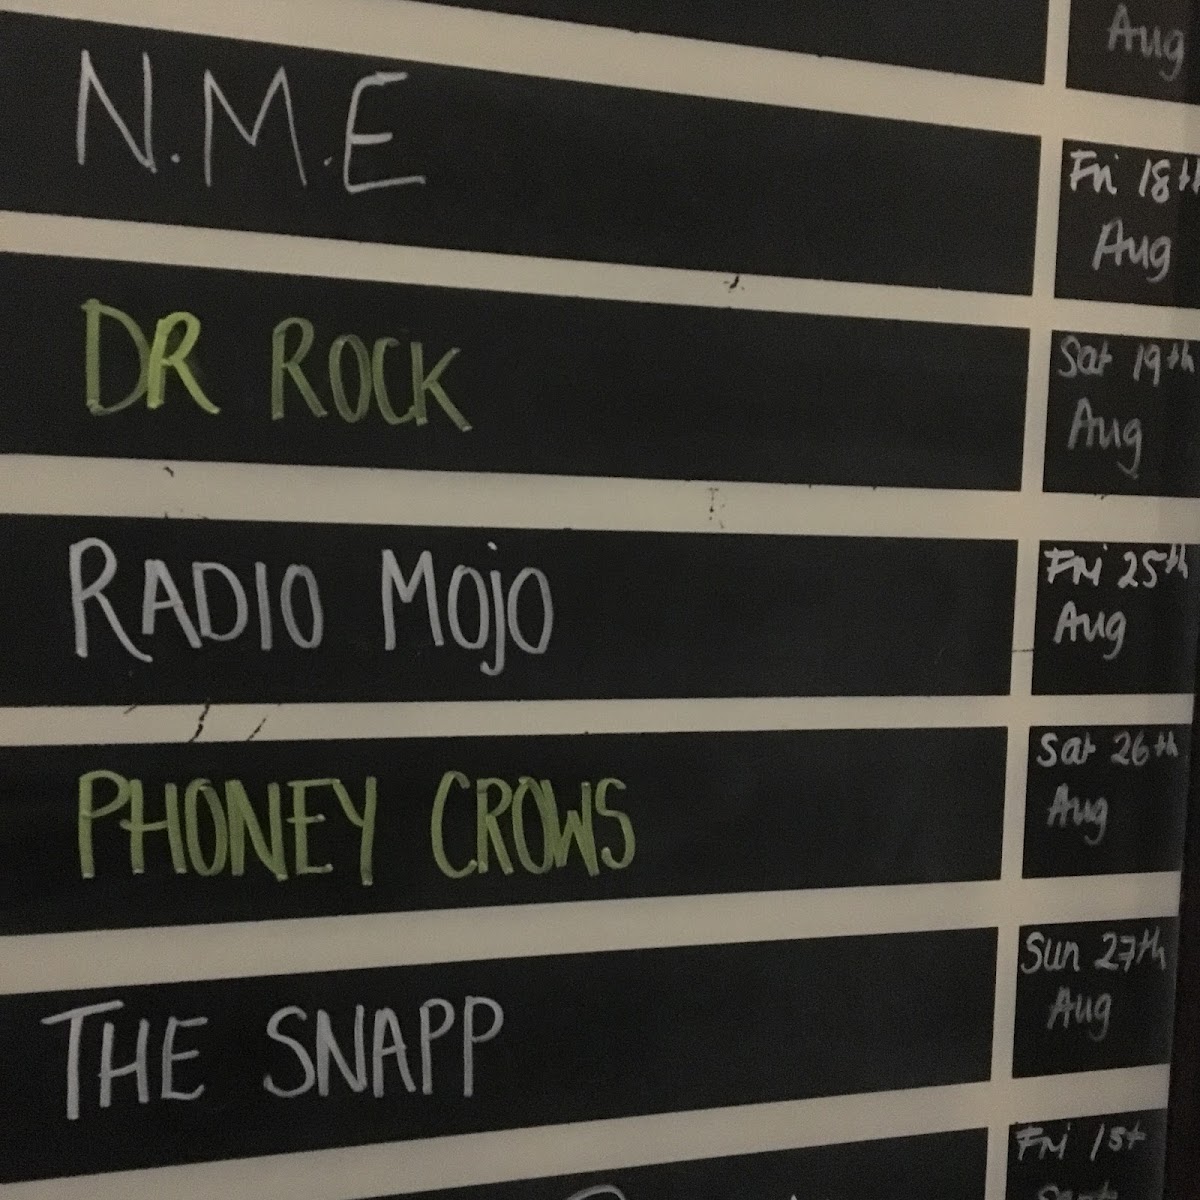 Aug
N.M.E
Fri 18th
Aug
DR ROCK
Sat 19th
Aug
RADIO MOJO
Fri 25th
Aug
PHONEY CROWS
Sat 26th
Aug
THE SNAPP
Sun 27th
Aug
Fri 1st